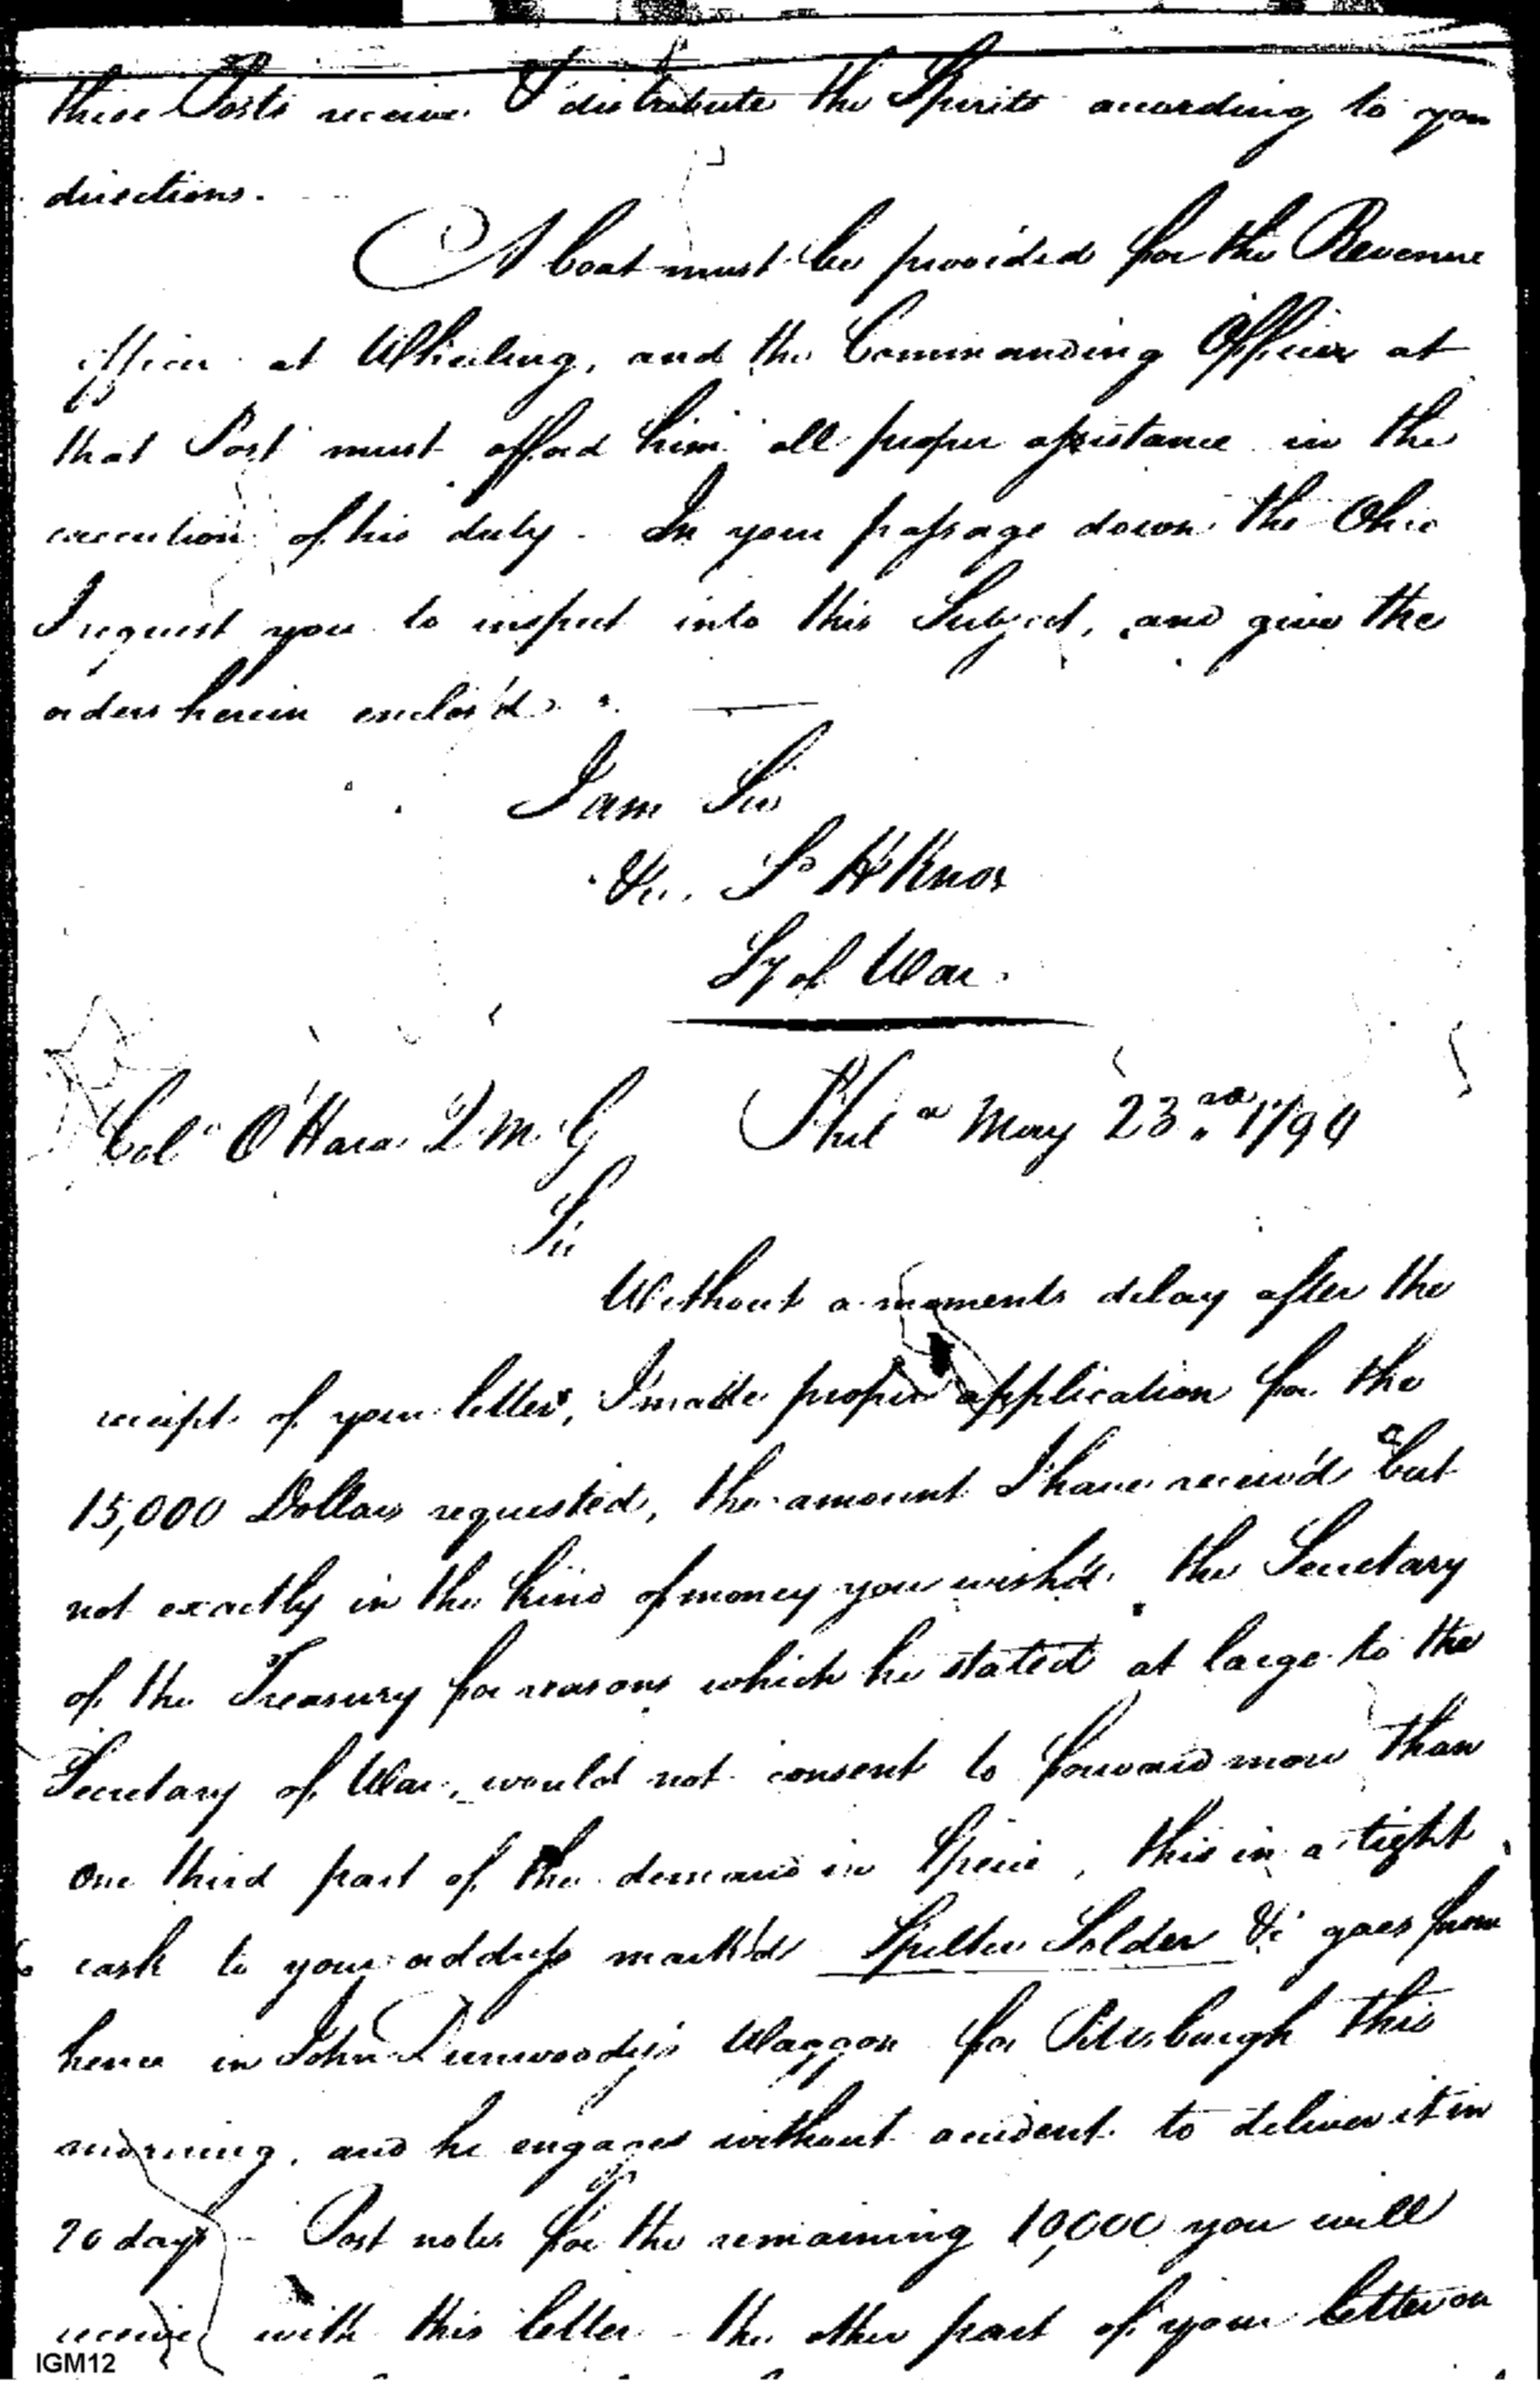 these Posts receive & distribute the Spirits according to you
directions.
A boat must be provided for the Revenue
officer at Wheeling, and the Commanding Officer at
that Post must afford him all proper assistance in the
execution of his duty. In your passage down the Ohio
I request you to inspect into this Subject, and give the
orders herein enclos'd.
I am Sir
&c. Sd H Knox
Sy of War.
Col. O'Hara Q. M. G Phila May 23rd 1794
Sir
Without a moments delay after the
receipt of your letter, I made proper application for the
15,000 Dollars requested, the amount I have receiv'd but
not exactly in the kind of money you wish'd. the Secretary
of the Treasury for reasons which he stated at large to the
Secretary of War, would not consent to forward more than
one third part of the demand in Specie, this in a tight
cask to your address mark'd Spelter Solder &c goes from
hence in John Dunwoody's Waggon for Pittsburgh this
morning, and he engages without accident to deliver it in
20 days - Post notes for the remaining 10,000 you will
receive with this letter - the other part of your letter on
IGM12